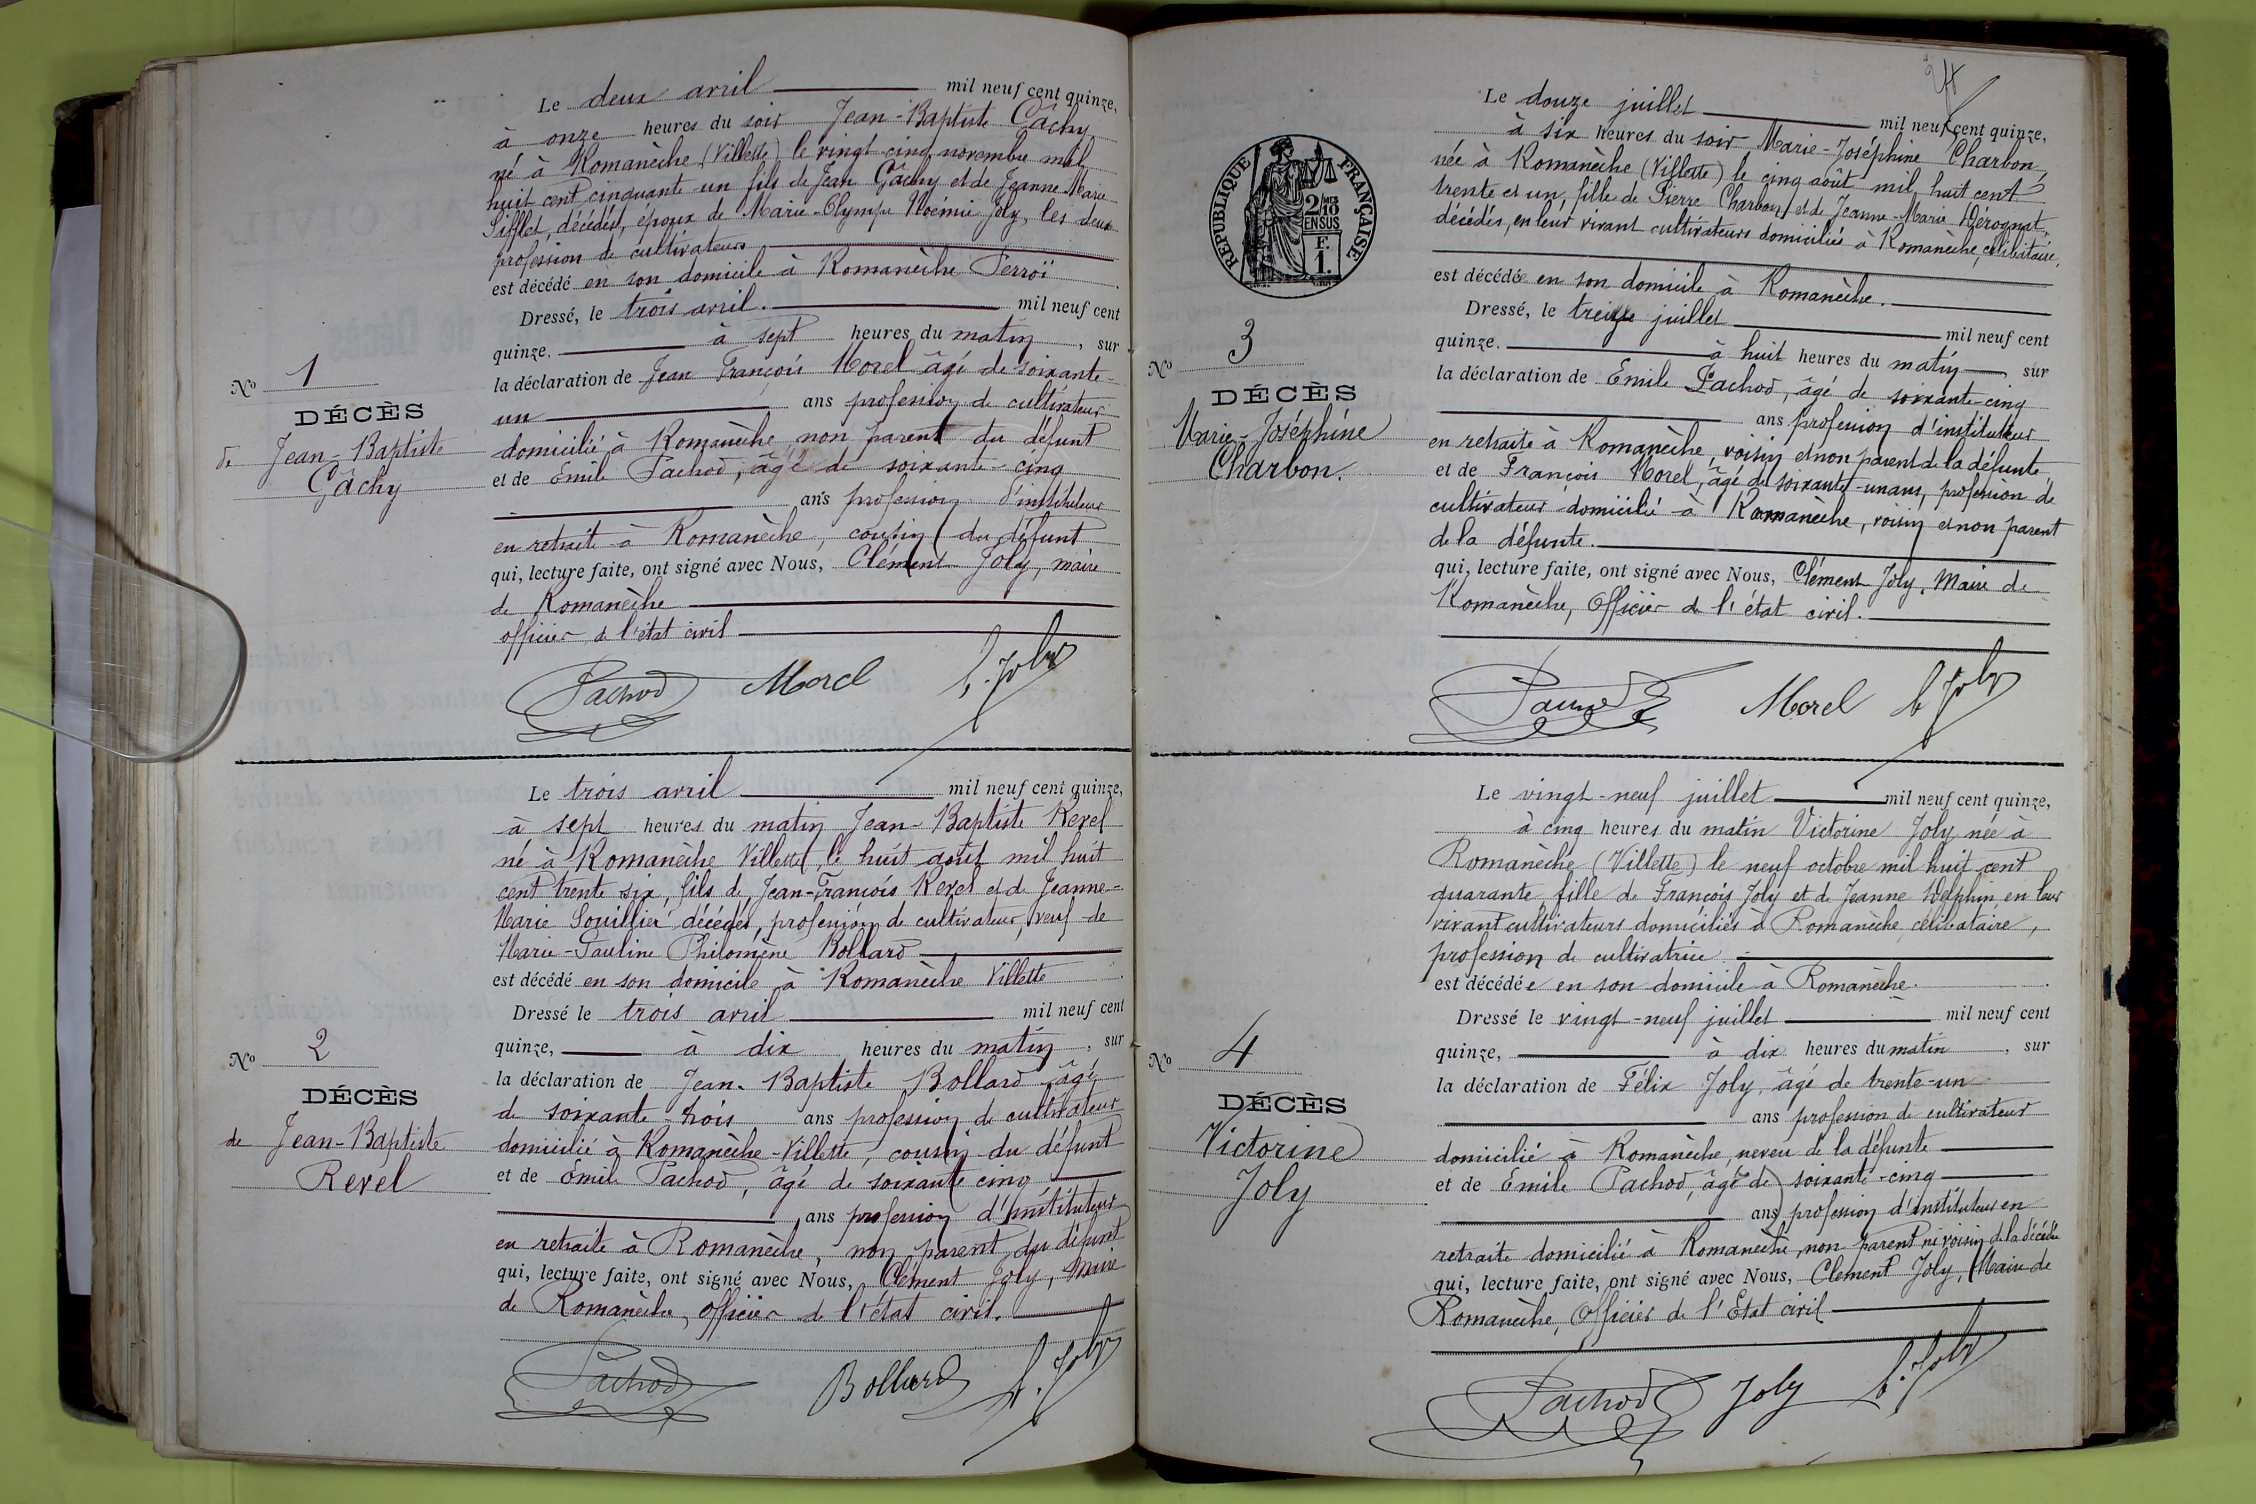 Le deux avril mil neuf cent quinze,
à onze heures du soir Jean-Baptiste Gâchy
né à Romanèche (Villette) le vingt-cinq novembre mil
huit cent cinquante-un fils de Jean Gâchy et de Jeanne Marie
Sifflet, décédés, époux de Marie-Olympe Noémie Joly, les deux
profession de cultivateurs
est décédé en son domicile à Romanèche Perroï
Dressé, le trois avril. mil neuf cent
quinze. à sept heures du matin, sur
la déclaration de Jean François Morel âgé de soixante-
un ans profession de cultivateur
domicilié à Romanèche non parent du défunt
et de Emile Pachod, âgé de soixante-cinq
ans profession d'instituteur
en retrait à Romanèche, cousin du défunt
qui, lecture faite, ont signé avec Nous, Clément Joly, maire
de Romanèche
officier de l'état civil
Pachod Morel C. Joly
No 1
DÉCÈS
de Jean-Baptiste
Gâchy
Le trois avril mil neuf cent quinze,
à sept heures du matin Jean-Baptiste Revel
né à Romanèche Villette le huit août mil huit
cent trente six, fils de Jean-François Revel et de Jeanne-
Marie Souillier décédés, profession de cultivateur, veuf de
Marie-Pauline Philomène Bollard
est décédé en son domicile à Romanèche Villette
Dressé le trois avril mil neuf cent
quinze, à dix heures du matin, sur
la déclaration de Jean-Baptiste Bollard âgé
de soixante-trois ans profession de cultivateur
domicilié à Romanèche-Villette, cousin du défunt
et de Emile Pachod, âgé de soixante cinq
ans profession d'instituteur
en retraite à Romanèche, non parent du défunt
qui, lecture faite, ont signé avec Nous, Clément Joly, Maire
de Romanèche, officier de l'état civil.
Pachod Bollard C. Joly
No 2
DÉCÈS
de Jean-Baptiste
Revel
Le douze juillet mil neuf cent quinze,
à six heures du soir Marie-Joséphine Charbon,
née à Romanèche (Villette) le cinq août mil huit cent
trente et un, fille de Pierre Charbon et de Jeanne-Marie Dérognat,
décédés, en leur vivant cultivateurs domiciliés à Romanèche, célibataire,
est décédée en son domicile à Romanèche.
Dressé, le treize juillet mil neuf cent
quinze. à huit heures du matin, sur
la déclaration de Emile Pachod, âgé de soixante-cinq
ans profession d'instituteur
en retraite à Romanèche, voisin et non parent de la défunte
et de François Morel, âgé de soixante-un ans, profession de
cultivateur domicilié à Romanèche, voisin et non parent
de la défunte.
qui, lecture faite, ont signé avec Nous, Clément Joly, Maire de
Romanèche, Officier de l'état civil.
Morel C Joly
RÉPUBLIQUE FRANÇAISE
2/10
EN SUS
F.
1.
No 3
DÉCÈS
Marie-Joséphine
Charbon.
Le vingt-neuf juillet mil neuf cent quinze,
à cinq heures du matin Victorine Joly née à
Romanèche (Villette) le neuf octobre mil huit cent
quarante fille de François Joly et de Jeanne Delphin en leur
vivant cultivateurs domiciliés à Romanèche, célibataire,
profession de cultivatrice
est décédée en son domicile à Romanèche.
Dressé le vingt-neuf juillet mil neuf cent
quinze, à dix heures du matin, sur
la déclaration de Félix Joly, âgé de trente-un
ans profession de cultivateur
domicilié à Romanèche, neveu de la défunte
et de Emile Pachod, âgé de soixante-cinq
ans profession d'instituteur en
retraite domicilié à Romanèche, non parent ni voisin de la décédée
qui, lecture faite, ont signé avec Nous, Clement Joly, Maire de
Romanèche, Officier de l'Etat civil
Pachod Joly C. Joly
No 4
DÉCÈS
Victorine
Joly